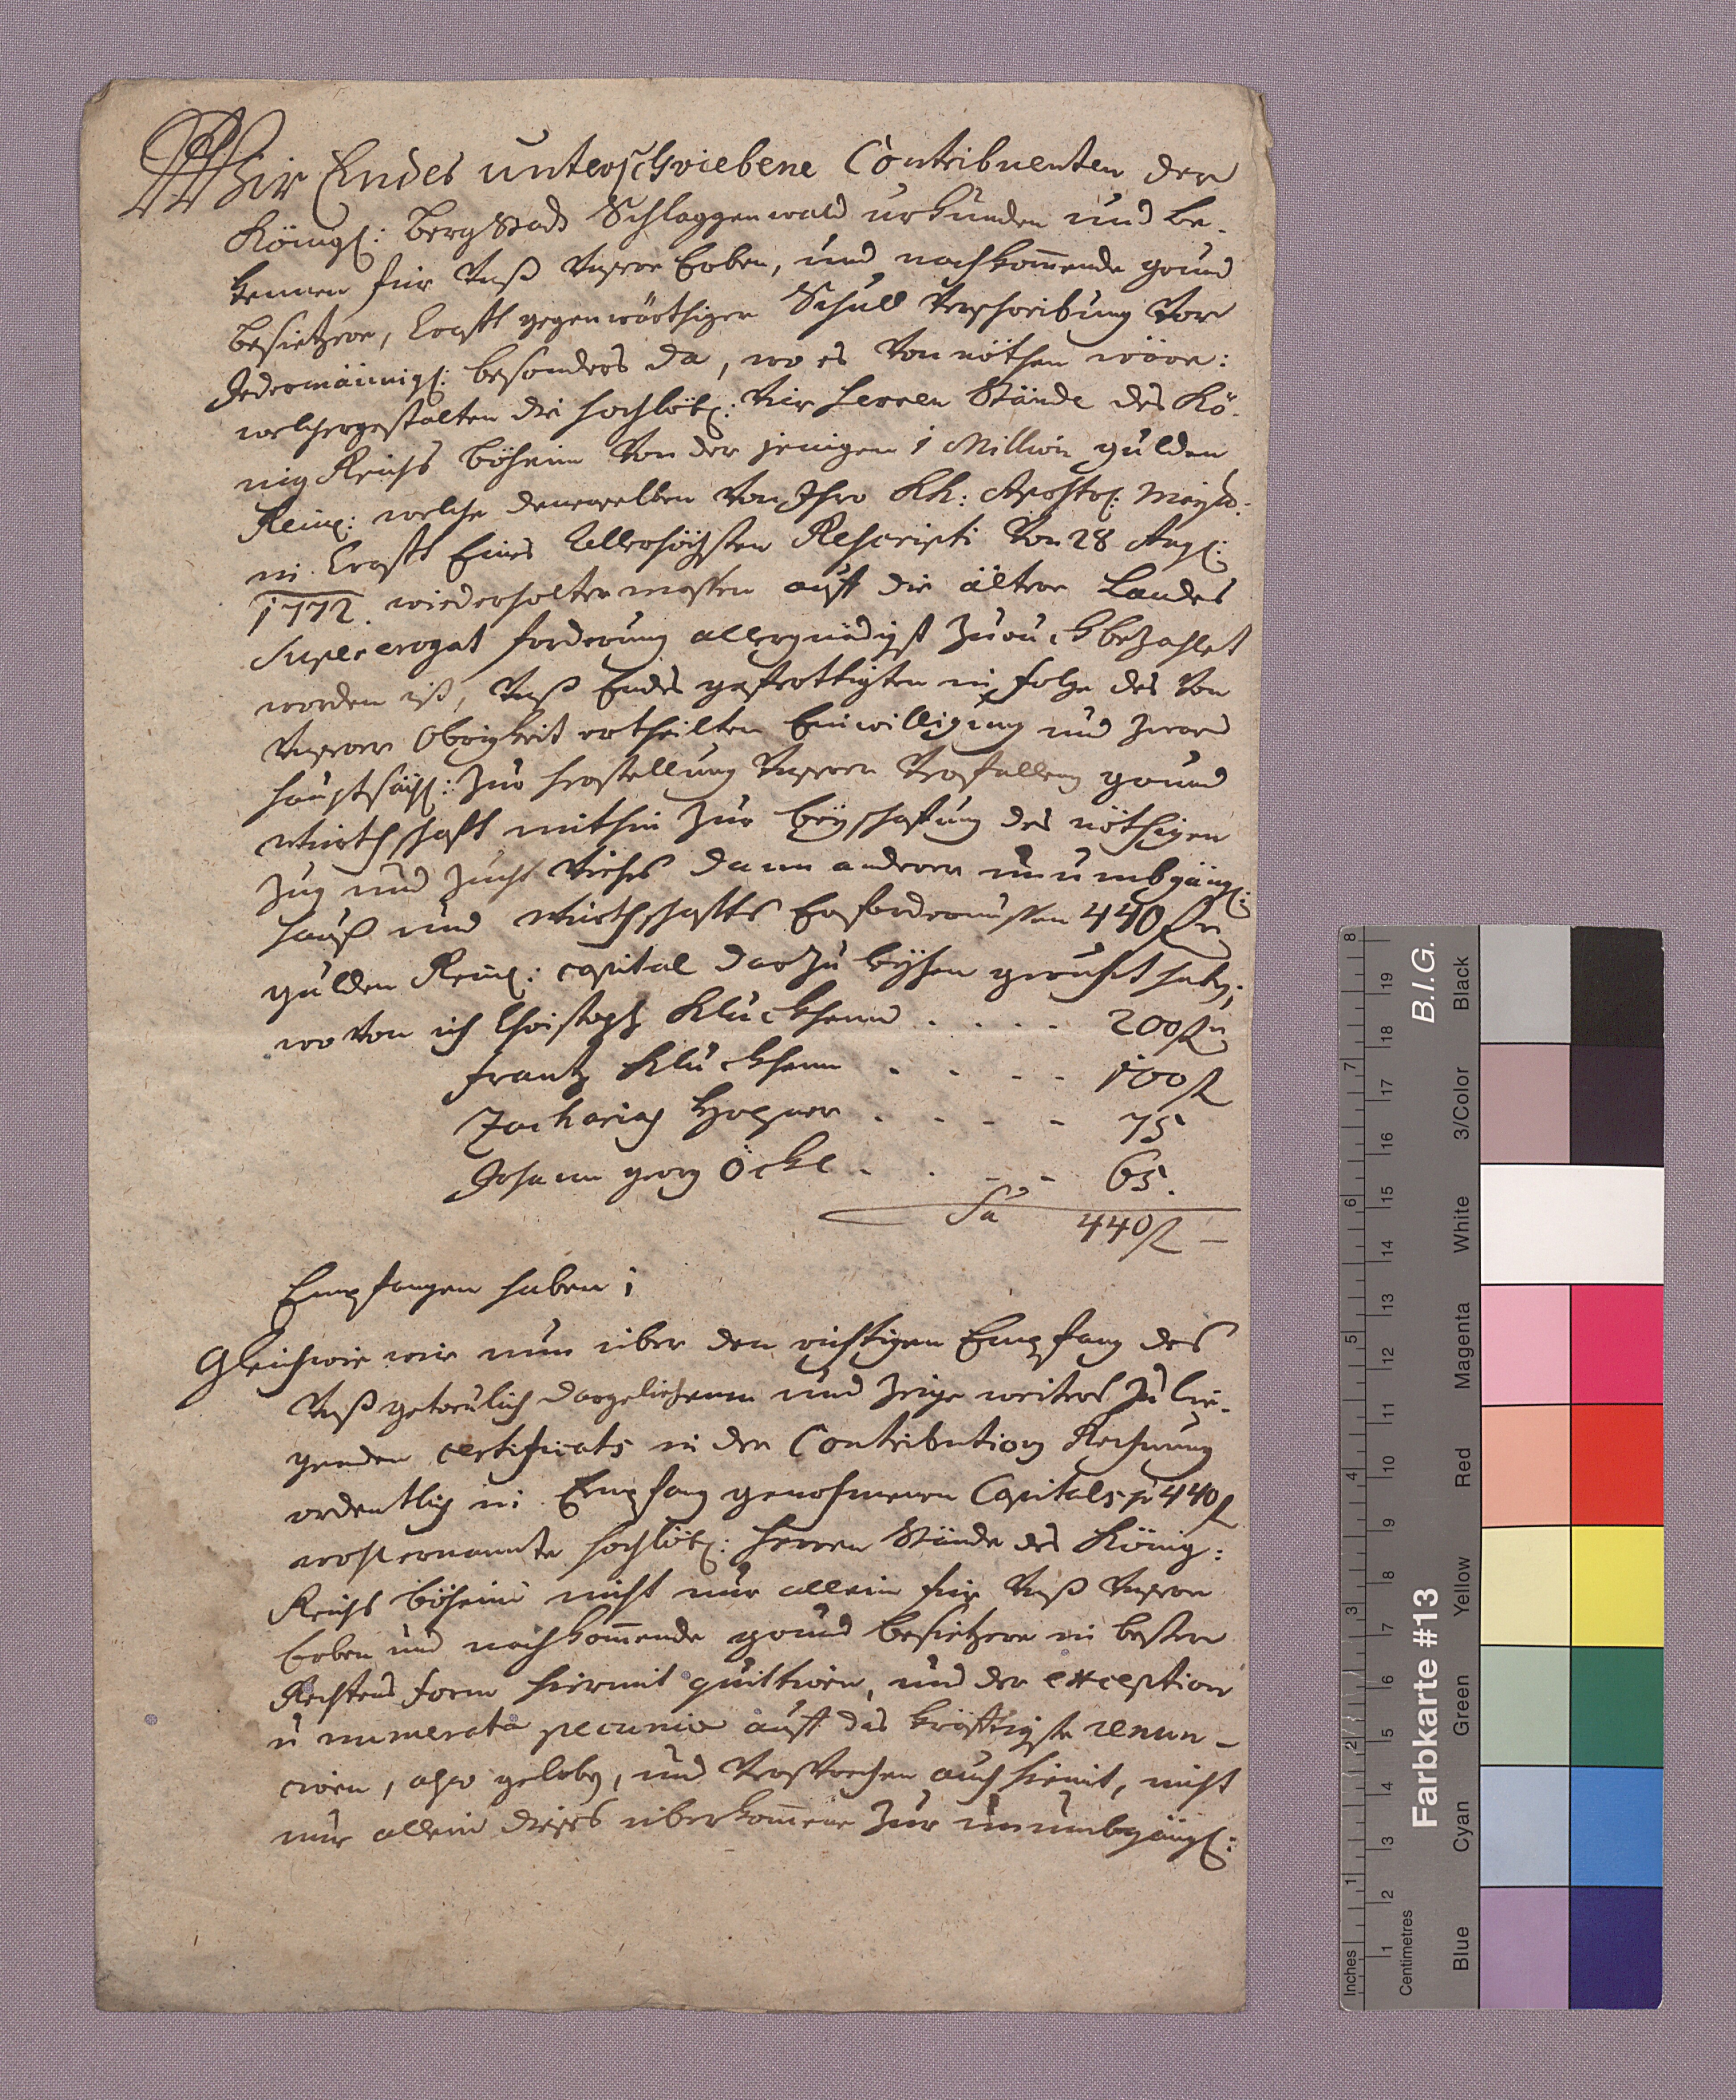 Wir Endes unterschriebene Contribuenten der
Königl: Bergstadt Schlaggenwald urkunden und be-
kennen für Unß Unsere Erben, und nachkommende grund
besitzere, Krafft gegenwärthiger Schuld Verschreibung Vor
Jedermännigl: besonders da, wo es Von nöthen wäre:
welchergestalten die hochlöbl: Vier Herren Stände des Kö-
nig Reichs Böheim Von der jenigen 1 Million gulden
Reinl: welche denenselben Von Ihro KK: Apostol: Mayst:
in Krafft Eines Allerhöchsten Rescripti Von 28 Aug:
1772. wiederholter massen auff die ältere Landes
Supererogat forderung allergnädigst zuruckbezahlet
worden ist, Unß Endes gefertigten in folge des Von
Unserer Obrigkeit ertheilten Einwilligung und zwar
hauptsächl: zur herstellung Unserer Verfallenen grund
wirthschafft mithin zur beyschafung des nöthigen
zug und zucht Viehes dann anderer unumbgängl:
hauß und wirthschaffts Erfordernussen 440 fl
gulden Reinl: capital darzu leyhen geruhet haben;
wo Von ich Christoph Kluckhenn . . . . 200 fl
frantz Kluckhenn . . . . 100 fl
Zacharias . . . . 75
Johann georg Öckl . . . . 65.
Sa 440 fl —
Empfangen haben;
Gleichwie wir nun über den richtigen Empfang des
Unß getreulich dargeliehenen und Zeige weiters zu lie-
genden certificats in der Contributions Rechnung
ordentlich in Empfang genohmenen Capitals p 440 fl
wohl ernannte hochlöbl: Herren Stände des König:
Reichs Böheim nicht nur allein für Unß Unsere
Erben und nachkommende grund besitzere in bester
Rechtens form hiermit quittiren, und der exception
numerata pecunia auff das kräfftigste renun-
ciren, also geloben, und Versprechen auch hiemit, nicht
nur allein dieses überkommene zur unumbgängl:
B.I.G.
Farbkarte #13
Inches 1 2 3 4 5 6 7 8
Centimetres 1 2 3 4 5 6 7 8 9 10 11 12 13 14 15 16 17 18 19
Blue Cyan Green Yellow Red Magenta White 3/Color Black